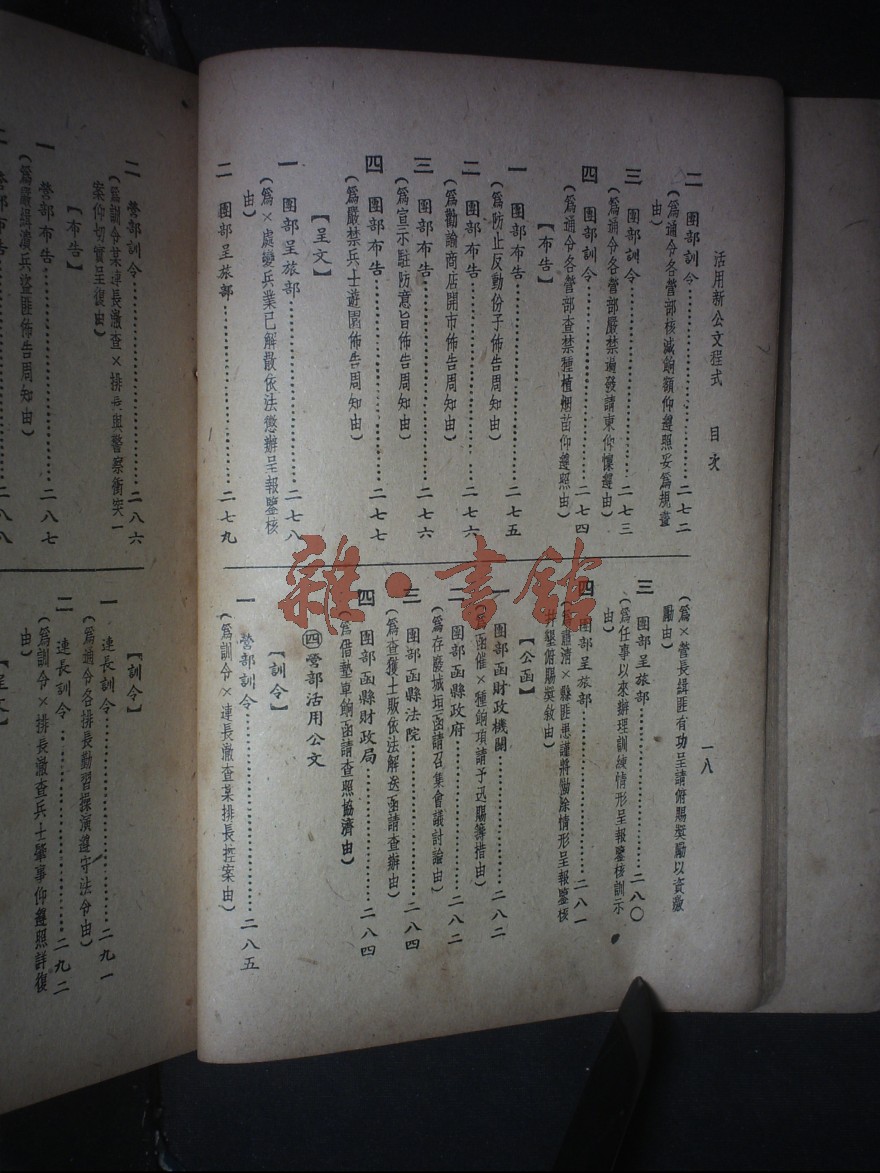 活用新公文程式　目次
一八
二　團部訓令……二七二
（爲通令各營部核減餉額仰遵照妥爲規畫
由）
三　團部訓令……二七三
（爲通令各營部嚴禁濫發請柬仰懍遵由）
四　團部訓令……二七四
（爲通令各營部查禁種植烟苗仰遵照由）
【布告】
一　團部布告……二七五
（爲防止反動份子佈告周知由）
二　團部布告……二七六
（爲勸諭商店開市佈告周知由）
三　團部布告……二七六
（爲宣示駐防意旨佈告周知由）
四　團部布告……二七七
（爲嚴禁兵士遊園佈告周知由）
【呈文】
一　團部呈旅部……二七八
（爲×處變兵業已解散依法懲辦呈報鑒核
由）
二　團部呈旅部……二七九
（爲×營長緝匪有功呈請俯賜獎勵以資激
勵由）
三　團部呈旅部……二八〇
（爲任事以來辦理訓練情形呈報鑒核訓示
由）
四　團部呈旅部……二八一
（爲肅清×縣匪患謹將勦除情形呈報鑒核
并墾俯賜獎敘由）
【公函】
一　團部函財政機關……二八二
（爲函催×種餉項請予迅賜籌措由）
二　團部函縣政府……二八二
（爲存廢城垣函請召集會議討論由）
三　團部函縣法院……二八四
（爲查獲土販依法解送函請查辦由）
四　團部函縣財政局……二八四
（爲借墊軍餉函請查照協濟由）
㊃營部活用公文
【訓令】
一　營部訓令……二八五
（爲訓令×連長澈查某排長控案由）
二　營部訓令……二八六
（爲訓令某連長澈查×排長與警察衝突一
案仰切實呈復由）
【布告】
一　營部布告……二八七
（爲嚴緝潰兵盜匪佈告周知由）
二　營部布告……二八八
【訓令】
一　連長訓令……二九一
（爲通令各排長勤習操演遵守法令由）
二　連長訓令……二九二
（爲訓令×排長澈查兵士肇事仰遵照詳復
由）
【呈文】
雜·書館